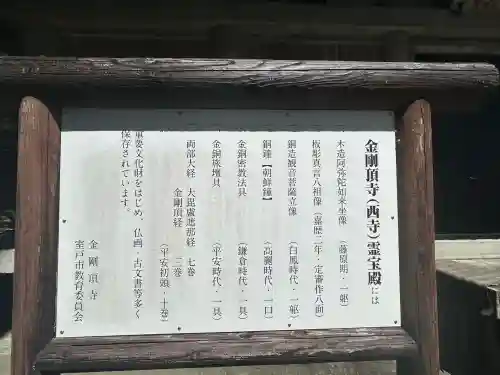 金剛頂寺（西寺）霊宝殿には
木造阿弥陀如来坐像（藤原期・一躯）
板彫真言八祖像（嘉暦二年・定審作八面）
銅造観音菩薩立像（白鳳時代・一躯）
銅鐘【朝鮮鐘】（高麗時代・一口）
金銅密教法具（鎌倉時代・一具）
金銅旅壇具（平安時代・一具）
両部大経 大毘盧遮那経 七巻
金剛頂経 三巻
（平安初頭・十巻）
重要文化財をはじめ、仏画・古文書等多く
保存されています。
金剛頂寺
室戸市教育委員会